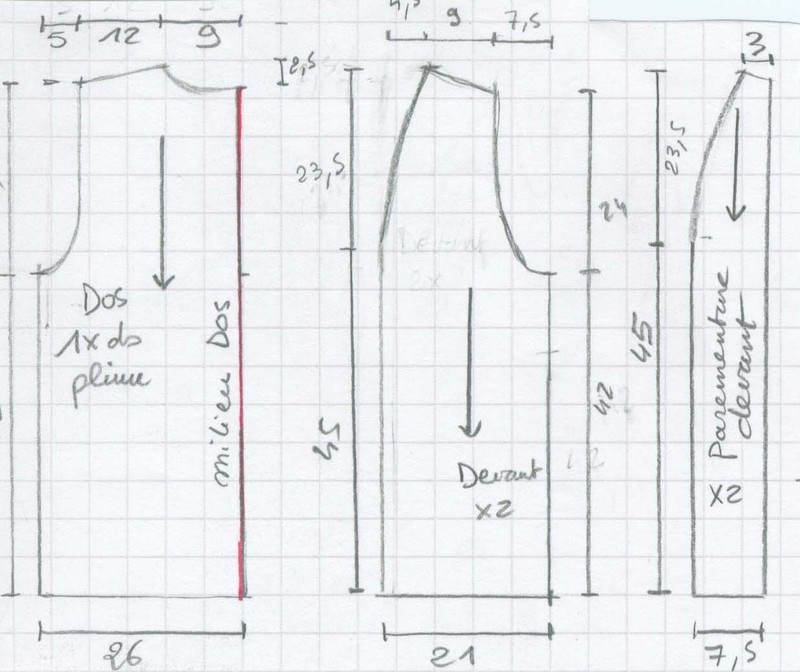 5 12 9
2,5
Dos
1x ds
pliure
milieu Dos
26
4,5 9 7,5
23,5
45
24
42
Devant
x2
21
3
23,5
45
Parementure
devant
x2
7,5